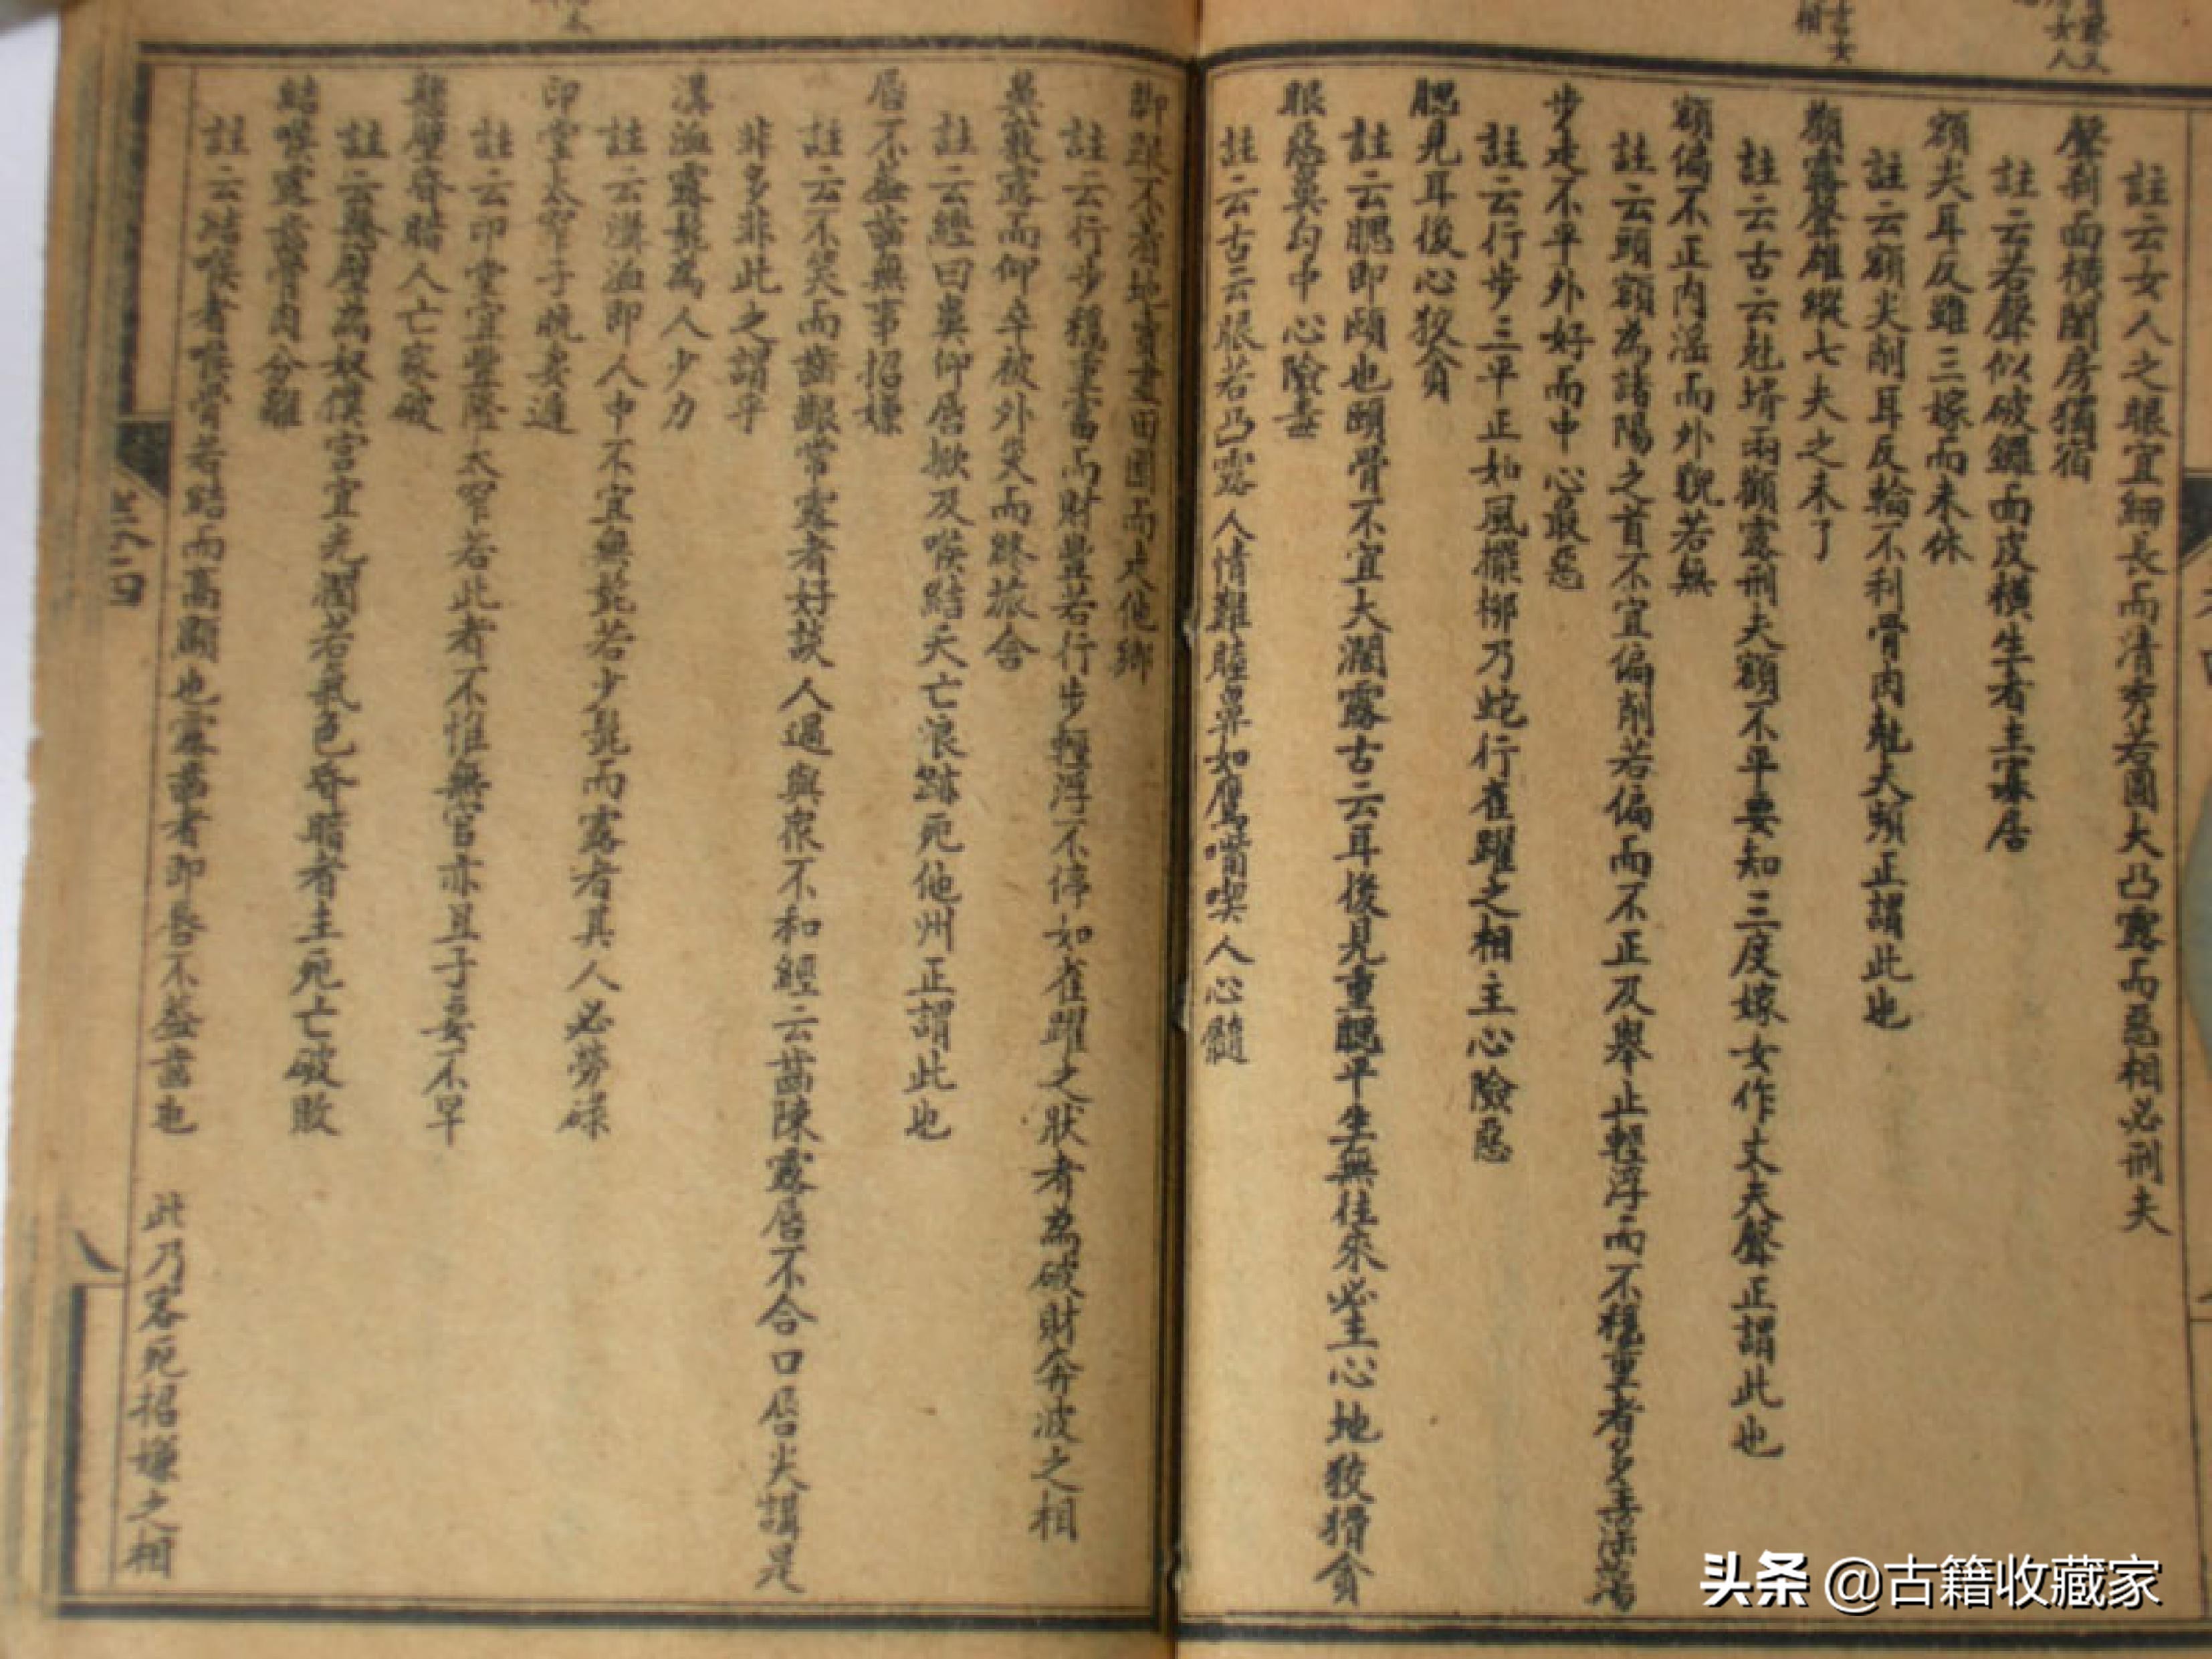 註云女人之眼宜細長而清秀若圓大凸露而惡相必刑夫
聲刹面橫閨房獨宿
註云若聲似破鑼面皮橫生者主寡居
額尖耳反雖三嫁而未休
註云額尖削耳反輪不利骨肉尅夫頻正謂此也
顴露聲雄縱七夫之未了
註云古云尅壻兩顴露刑夫額不平要知三度嫁女作丈夫聲正謂此也
額偏不正內滛而外貌若無
註云頭額為諸陽之首不宜偏削若偏而不正及舉止輕浮而不穩重者多
步走不平外好而中心最惡
註云行步三平正如風擺柳乃蛇行雀躍之相主心險惡
腮見耳後心狡貪
註云腮即頤也頤骨不宜大濶露古云耳後見重腮平生無往來必主心地狡猾貪
眼惡鼻勾中心險毒
註云古云眼若凸露人情難睦鼻如鷹嘴喫人心髓
脚跟不着地賣盡田園而走他鄉
註云行步穩重富而財豐若行步輕浮不停如雀躍之狀者為破財奔波之相
鼻竅露而仰卒被外災而終旅舍
註云經曰鼻仰唇掀及喉結夭亡浪跡死他州正謂此也
唇不蓋齒無事招嫌
註云不笑而齒齦常露者好談人過與衆不和經云齒陳露唇不合口唇尖謂是
非多非此之謂乎
溝洫露髭為人少力
註云溝洫即人中不宜無髭若少髭而露者其人必勞碌
印堂太窄子晚妻遲
註云印堂宜豐隆太窄若此者不惟無官亦且子妻不早
懸壁昏暗人亡家破
註云懸壁為奴僕宮宜光潤若氣色昏暗者主死亡破敗
結喉露齒骨肉分離
註云結喉者喉骨若結而高顯也露齒者即唇不蓋齒也　此乃客死招嫌之相
頭条 @古籍收藏家